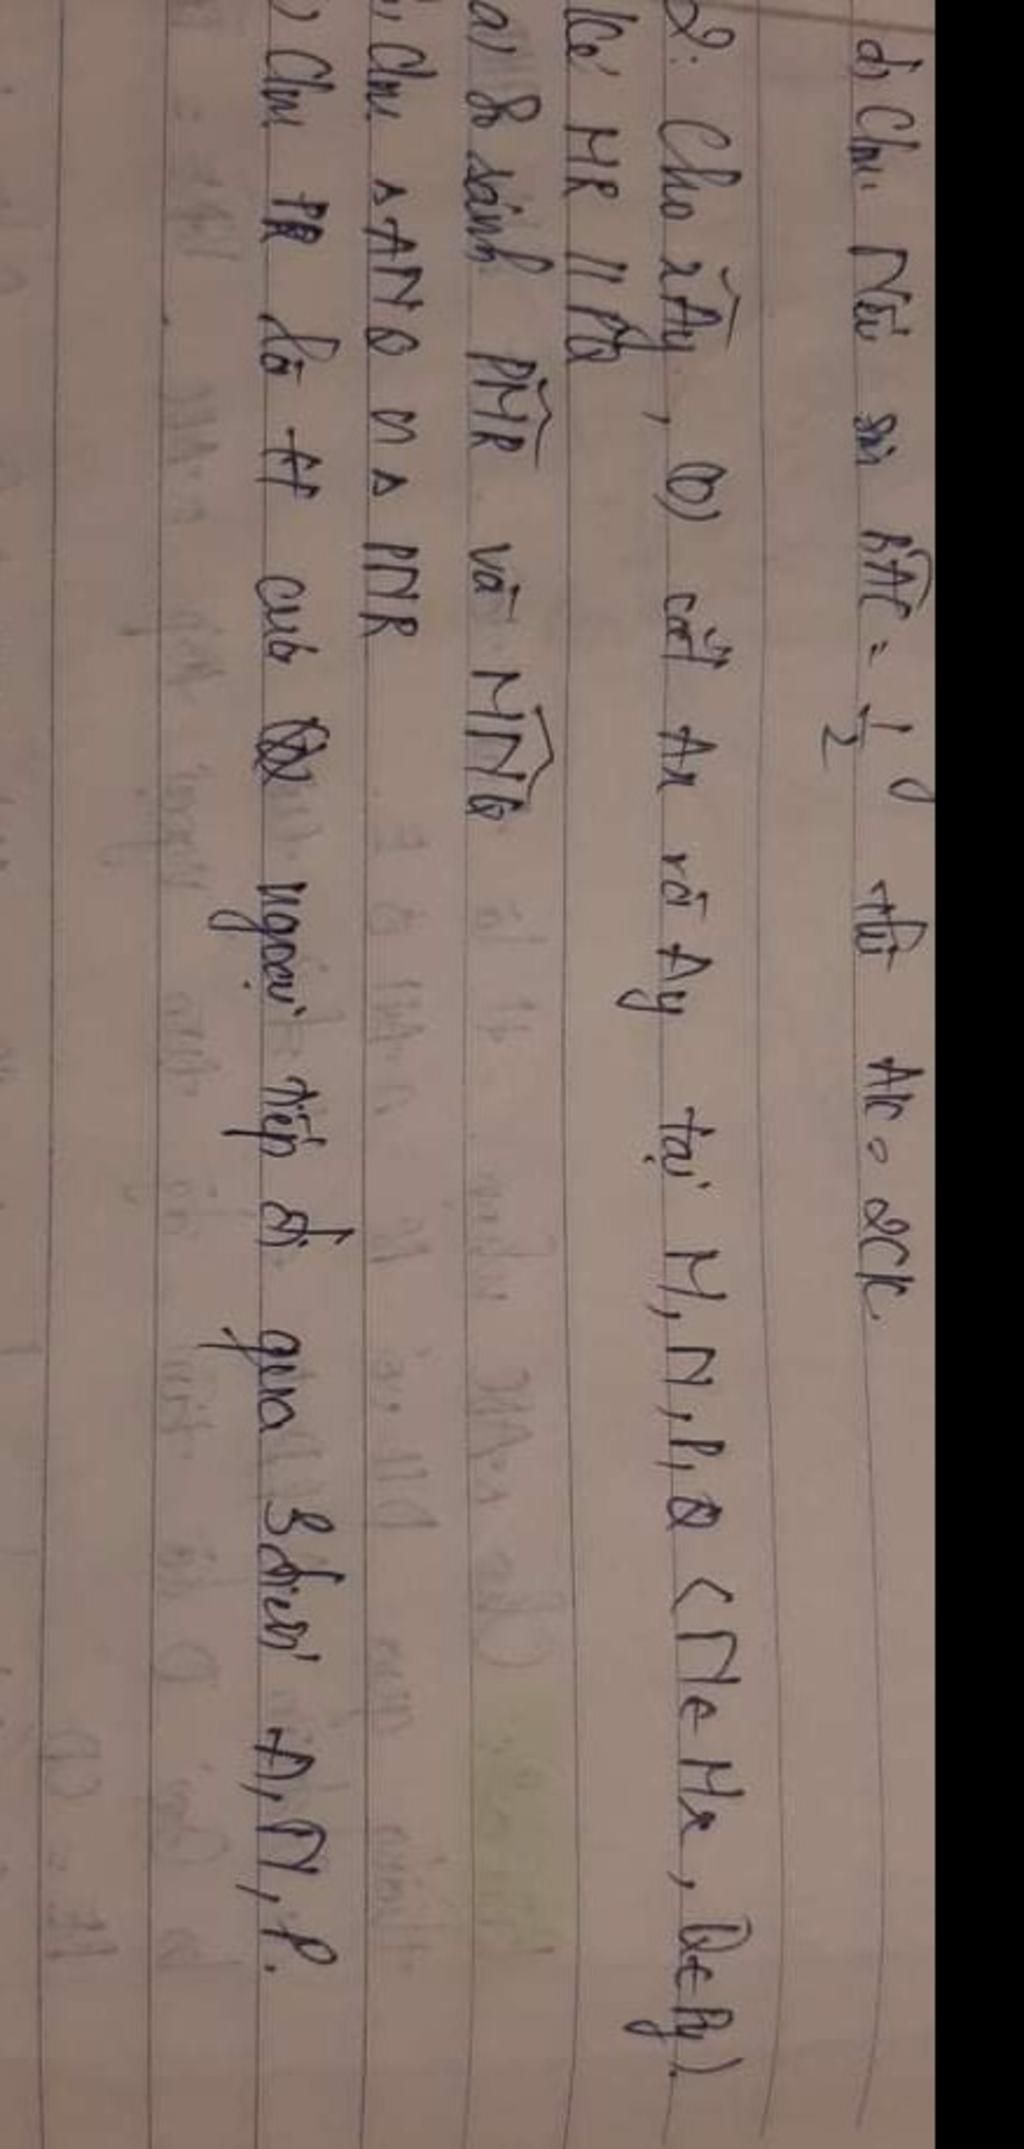 d, Cm: Nếu sin BAC = 1/2 thì AK = 2CK
2: Cho xAy, (O) cắt Ax và Ay tại M, N, P, Q (N ∈ Mx, Q ∈ Py).
Kẻ MR // PQ
a) So sánh PMR và MNQ
, Cm ΔANQ ∽ ΔPNR
) Cm PR là tt của ngoại tiếp đi qua 3 điểm A, N, P.